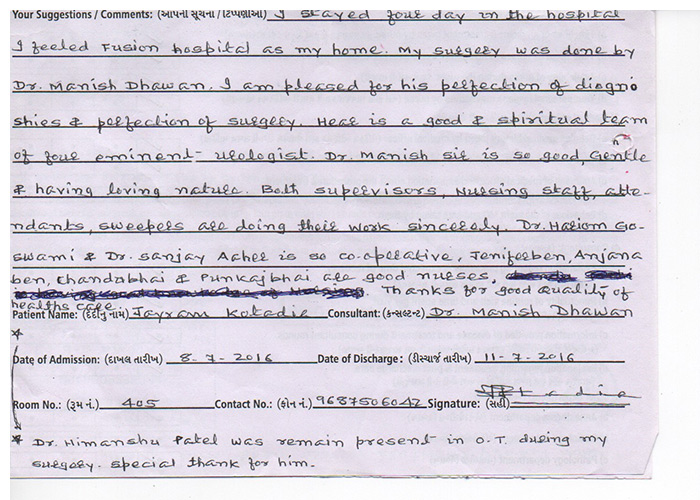 Your Suggestions / Comments: (આપની સૂચના / ટિપ્પણીઓ) I stayed four day in the hospital
I feeled Fusion hospital as my home. My surgery was done by
Dr. Manish Dhawan. I am pleased for his perfection of diogno
shies & perfection of surgery. Hear is a good & spiritual team
of four eminent urologist. Dr. Manish sir is so good, Gentle
& having loving nature. Both supervisors, Nursing staff, atte-
ndants, sweepers are doing their work sincerely. Dr. Hariom Go-
swami & Dr. Sanjay Acher is so co-operative, Jeniferben, Anjana
ben, Chandubhai & Punkajbhai are good nurses,
Thanks for good quality of
healths care.
Patient Name: (દર્દીનું નામ) Jayram Kotadia Consultant: (કન્સલ્ટન્ટ) Dr. Manish Dhawan
Date of Admission: (દાખલ તારીખ) 8-7-2016 Date of Discharge: (ડીસ્ચાર્જ તારીખ) 11-7-2016
Room No.: (રૂમ નં.) 405 Contact No.: (ફોન નં.) 9687506042 Signature: (સહી)
* Dr. Himanshu Patel was remain present in O.T. during my
surgery. special thank for him.